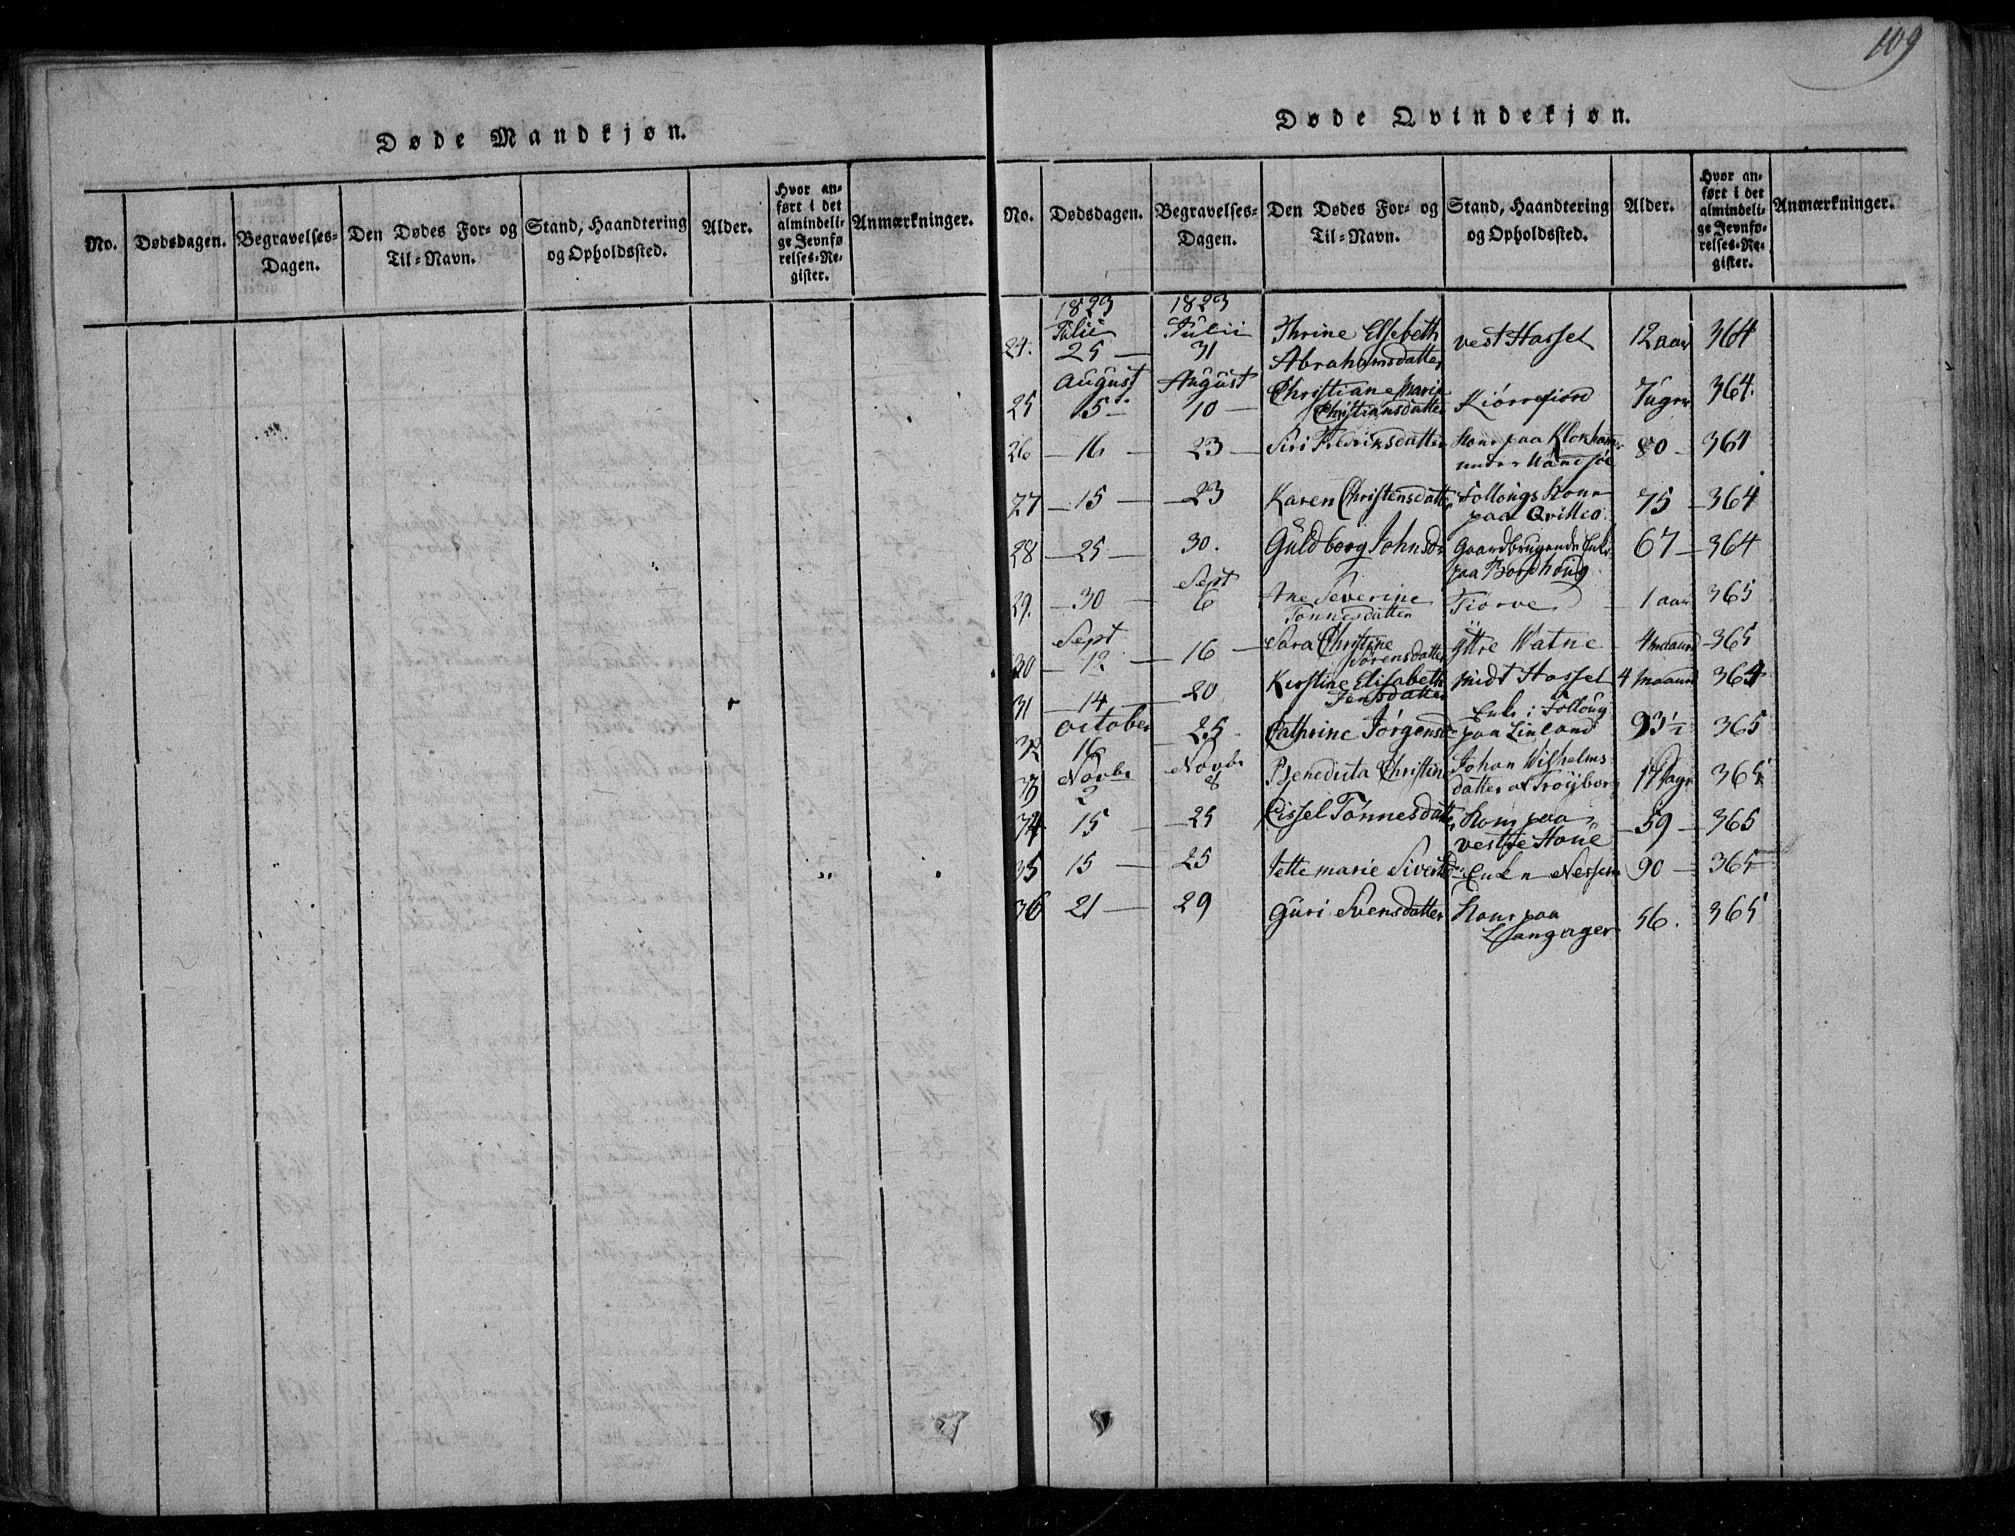 109
Døde Mandkjøn.
No.
Dødsdagen.
Begravelses-
Dagen.
Den Dødes For- og
Til-Navn.
Stand, Haandtering
og Opholdssted.
Alder.
Hvor an-
ført i det
almindeli-
ge Jevnfø
relses-Re-
gister.
Anmærkninger.
Døde Qvindekjøn.
No.
Dødsdagen.
Begravelses-
Dagen.
Den Dødes For- og
Til-Navn.
Stand, Haandtering
og Opholdssted.
Alder.
Hvor an-
ført i det
almindeli-
ge Jevnfø-
relses-Re-
gister.
Anmærkninger.
1823 1823
24. Julii 25 — Julii 31 Thrine Elsebeth vest Hassel 12 aar 364
Abrahamsdatter
25 August 15 — August 10 — Christiane Marie Kiørrefiord 7 uger 364.
Christiansdatter
26 — 16 — 23 — Siri Fredriksdatter Kone paa 80 — 364
under
27 — 15 — — 23 Karen Christensdatter Follougs Kone 75 — 364
paa Qvilleo.
28 — 25 — 30. Guldborg Johnsdr Gaardbrugende Enke 67 — 364
paa Bordhoug
29. — 30 — Sept 6 Ane Severine Tiørve — 1 aar 365
Tønnesdatter
30 Sept — 12 — 16 — Sara Christine Yttre Watne — 4 maand 365
Sørensdatter
31 — 14 — 20 Kirstine Elisabeth midt Hassel 4 maand 364
Jensdatter
32 October 16 — 25. Cathrine Jørgensd Enke i Folloug 93½ 365
paa Linland
33 Novbr 2 Novbr 8 Benedicta Christine Johan Wilhelms 17 Dage 365
datter af
34 15 — — 25 Sissel Tønnesdatter Kone paa — 59 — 365
vestre Houe
35 15 — 25 Jette marie Sivertsd Enke 90 — 365
36 21 — 29 Guri Svensdatter Kone paa 56. 365
Langager